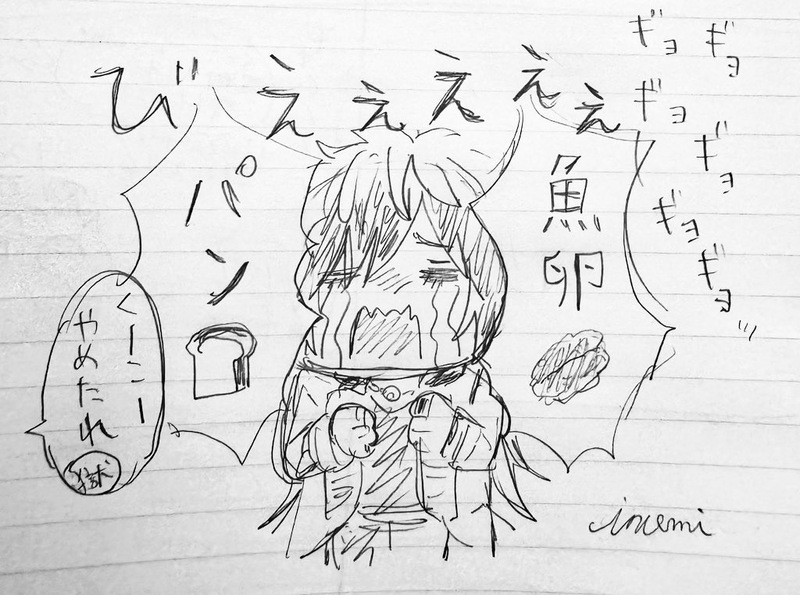 びえぇえぇぇ
ギョ
ギョ
ギョ
ギョ
ギョ
ギョッ
魚卵
パン
くーこー
やめたれ
獄